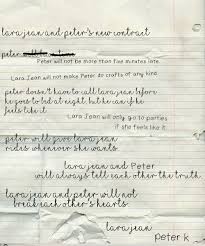 lara jean and peter's new contract
peter
Peter will not be more than five minutes late.
Lara Jean will not make Peter do crafts of any kind.
peter doesn't have to call lara jean before
he goes to bed at night, but he can if he
feels like it.
Lara Jean will only go to parties
if she feels like it.
peter will give lara jean
rides whenever she wants.
lara jean and Peter
will always tell each other the truth.
lara jean and peter will not
break each other's hearts.
lara jean
peter k